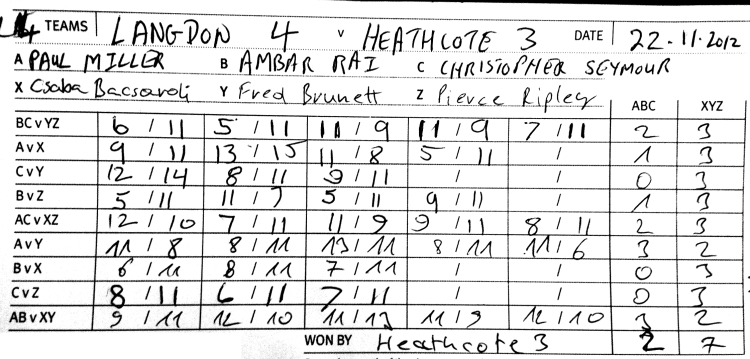 4 TEAMS LANGDON 4 V HEATHCOTE 3 DATE 22-11-2012
A PAUL MILLER B AMBAR RAI C CHRISTOPHER SEYMOUR
X Csaba Bacsaroli Y Fred Brunett Z Pierce Ripley ABC XYZ
BCvYZ 6 / 11 5 / 11 11 / 9 11 / 9 7 / 11 2 3
AvX 9 / 11 13 / 15 11 / 8 5 / 11 / 1 3
CvY 12 / 14 8 / 11 9 / 11 / / 0 3
BvZ 5 / 11 11 / 7 5 / 11 9 / 11 / 1 3
ACvXZ 12 / 10 7 / 11 11 / 9 9 / 11 8 / 11 2 3
AvY 11 / 8 8 / 11 13 / 11 8 / 11 11 / 6 3 2
BvX 6 / 11 8 / 11 7 / 11 / / 0 3
CvZ 8 / 11 6 / 11 7 / 11 / / 0 3
ABvXY 9 / 11 12 / 10 11 / 13 11 / 9 12 / 10 3 2
WON BY Heathcote 3 2 7